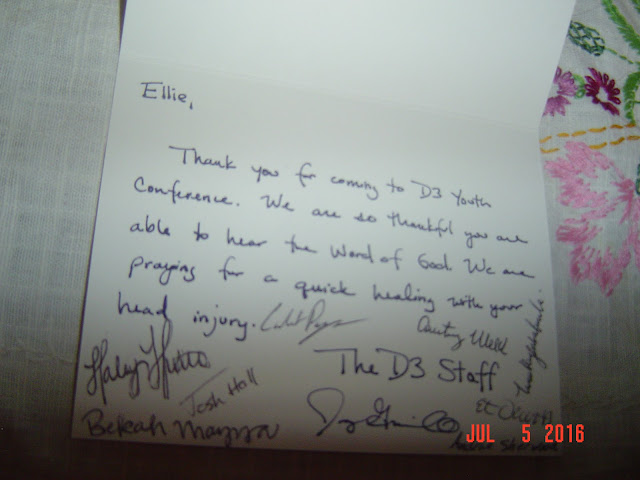 Ellie,
Thank you for coming to D3 Youth
Conference. We are so thankful you are
able to hear the Word of God. We are
praying for a quick healing with your
head injury.
The D3 Staff
Josh Hall
Bekah
JUL 5 2016